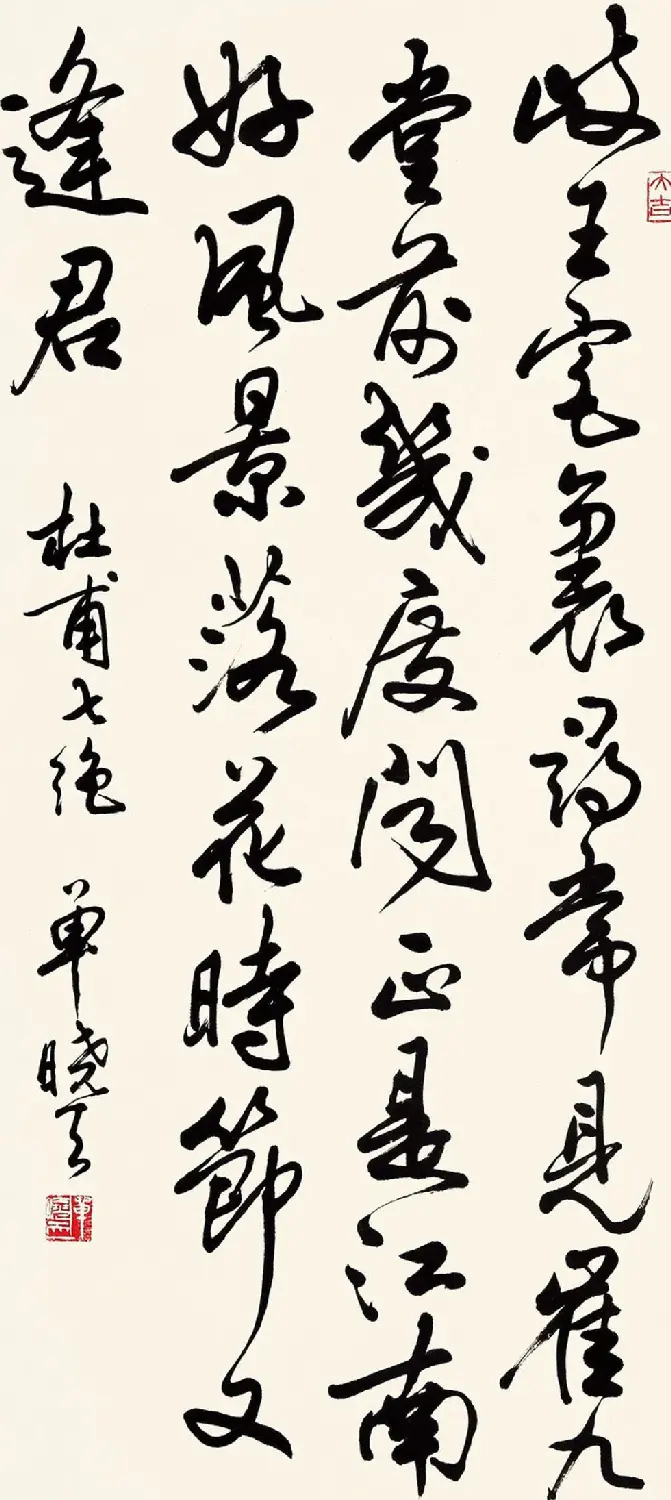 岐王宅裏尋常見崔九
堂前幾度聞正是江南
好風景落花時節又
逢君
杜甫七絕
单晓天
大吉